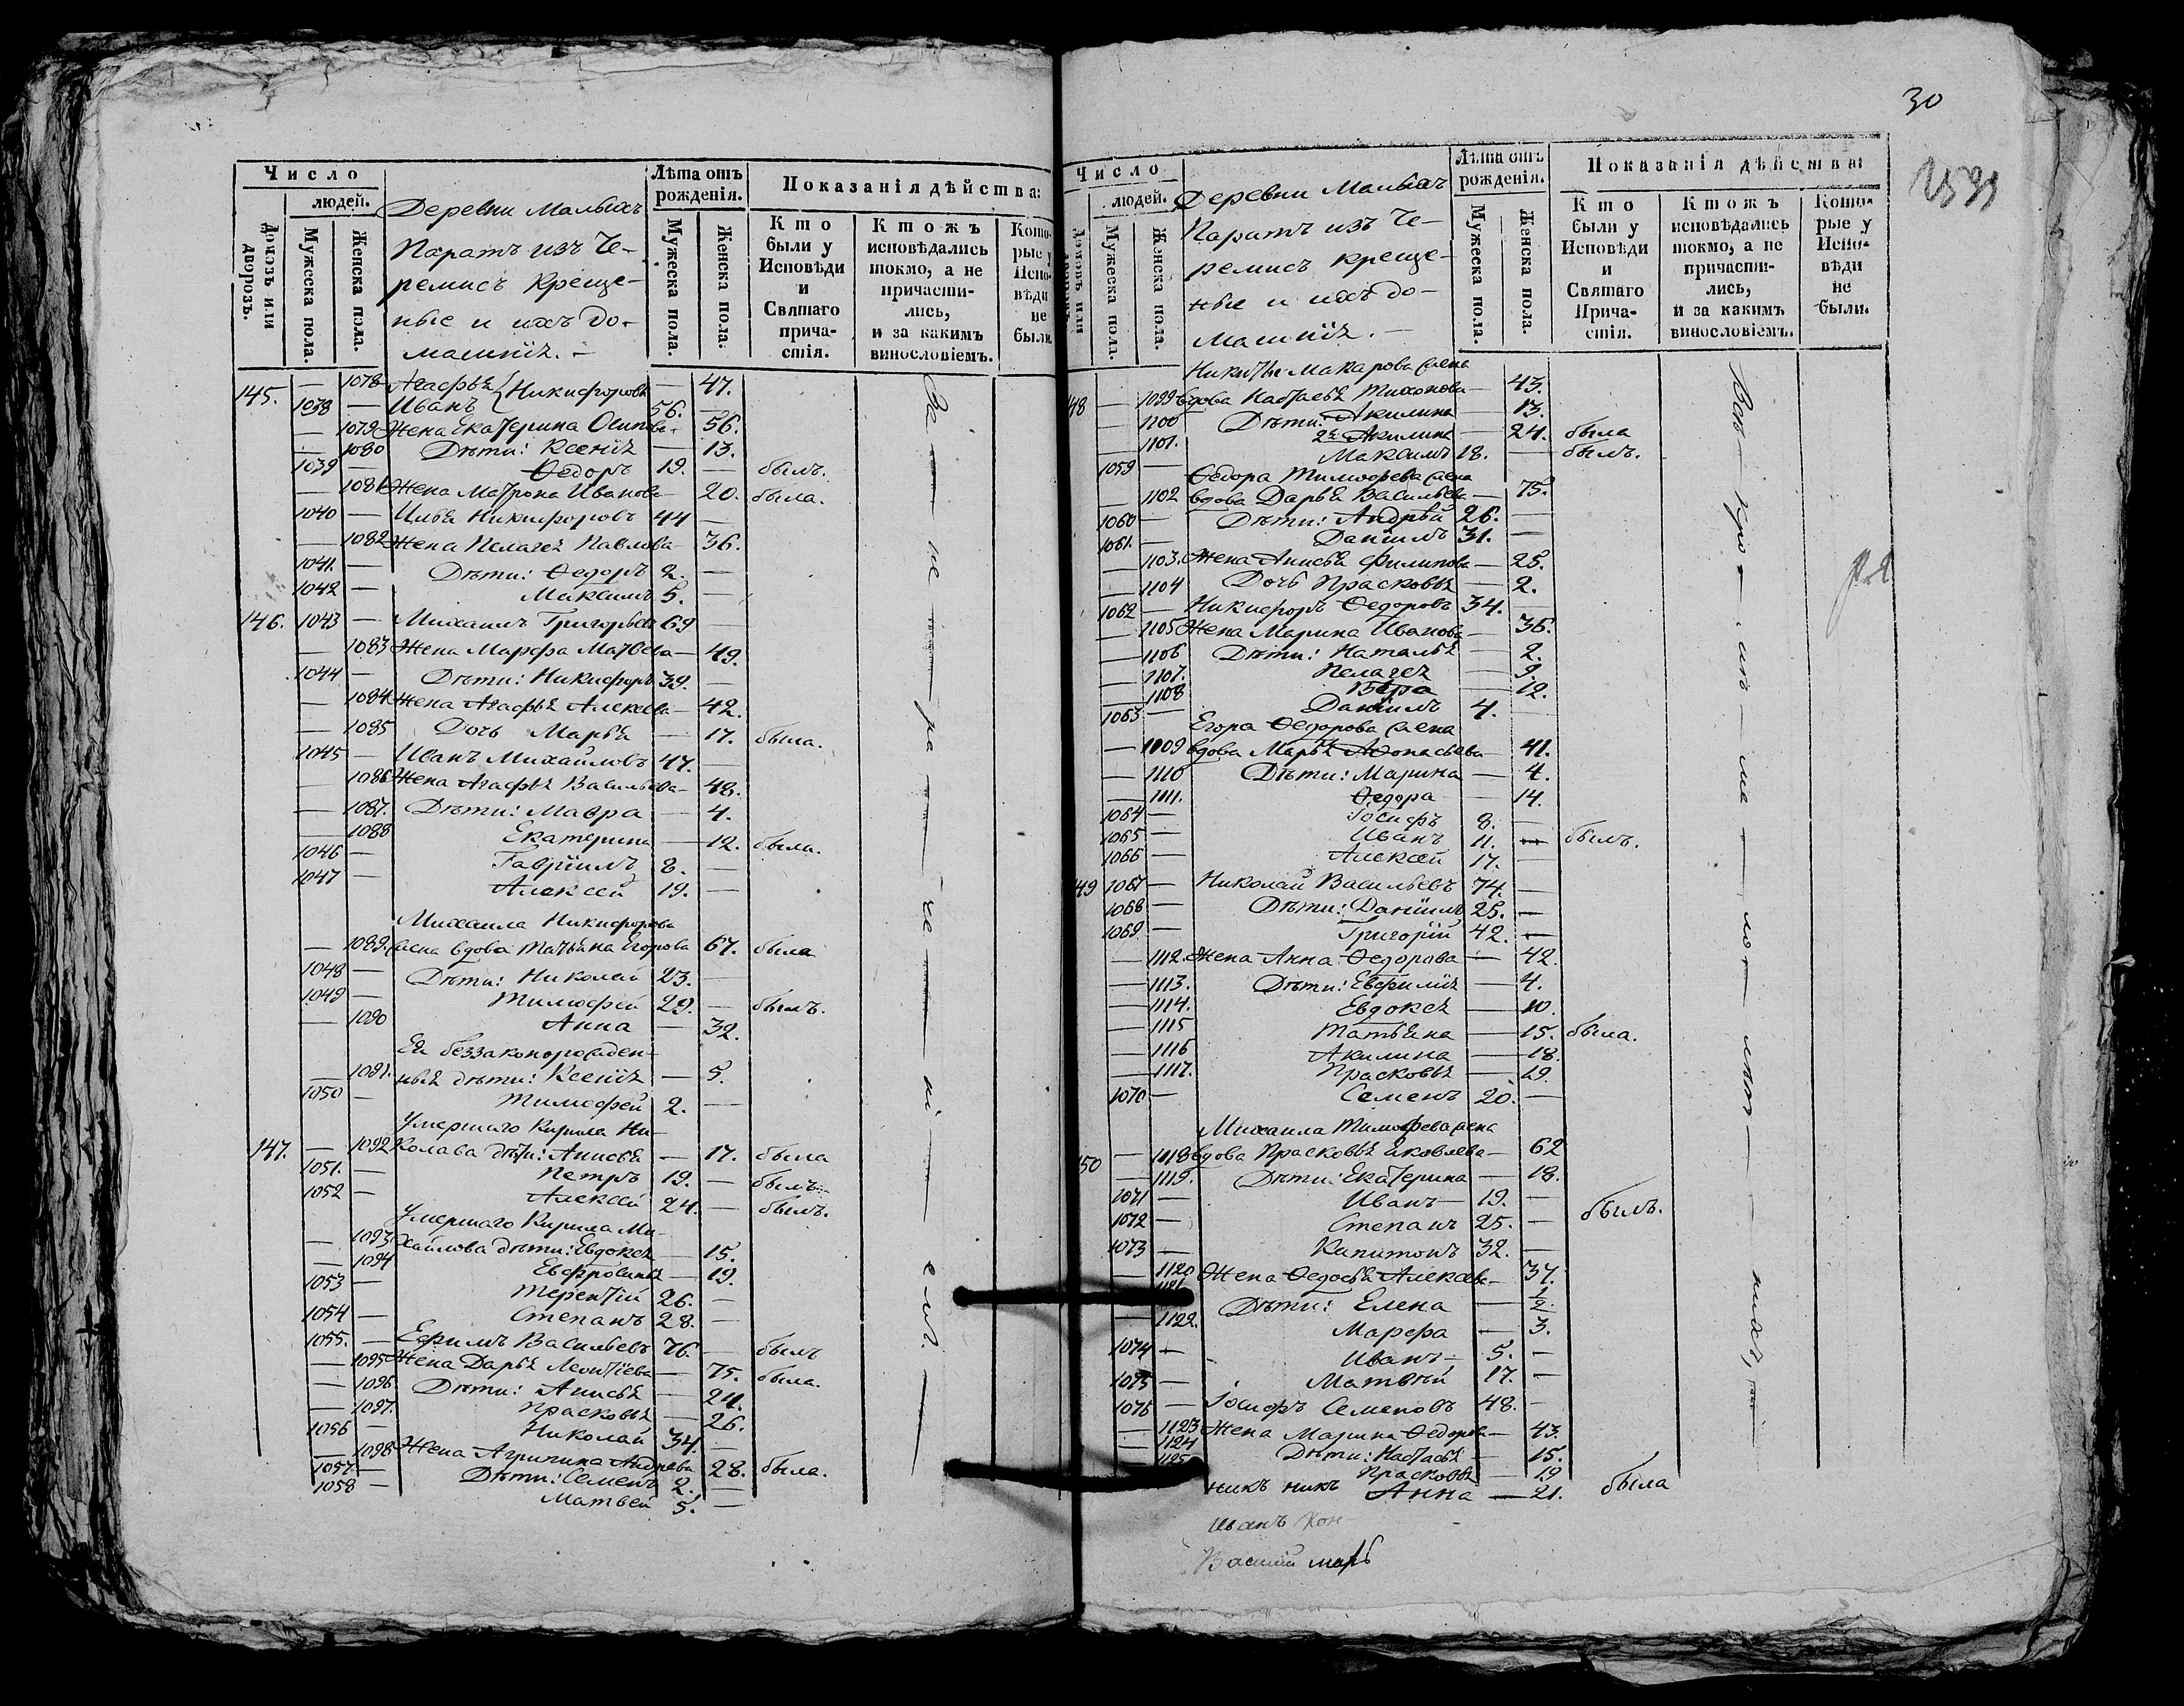 Число
людей.
Домовъ или дворовъ.
Мужеска пола.
Женска пола.
Деревни Малыхъ
Паратъ изъ Че-
ремисъ креще-
ные и ихъ до-
машнія. –
Лѣта отъ рожденія.
Мужеска пола.
Женска пола.
Показанія дѣйства:
Кто были у Исповѣди и Святаго прича-стія.
Ктожъ исповѣдались токмо, а не причасти-лись, и за какимъ винословіемъ.
Кото-рые у Испо-вѣди не были.
145. — 1078 Агафья Никифорова — 47.
1038 — Иванъ 56. —
— 1079 Жена Екатерина Осипова — 56.
— 1080 Дѣти: Ксенія — 13.
1039 — Ѳедоръ 19. — былъ.
— 1081 Жена Матрона Иванова — 20. была.
1040 — Илья Никифоровъ 44 —
— 1082 Жена Пелагея Павлова — 36.
1041. — Дѣти: Ѳедоръ 2. —
1042 — Максимъ 5. —
146. 1043 — Михаилъ Григорьевъ 69 —
— 1083 Жена Марфа Матвева — 49.
1044 — Дѣти: Никифоръ 39. —
— 1084 Жена Агафья Алексева — 42.
— 1085 Дочь Марья — 17. была.
1045 — Иванъ Михайловъ 47. —
— 1086 Жена Агафья Васильева — 48.
— 1087. Дѣти: Мавра — 4.
— 1088 Екатерина — 12. была.
1046 — Гавріилъ 8. —
1047 — Алексей 19. —
Михаила Никифорова
— 1089. жена вдова Татьяна Егорова 67. была
1048 — Дѣти: Николай 23. —
1049 — Тимофей 29. — былъ.
— 1090 Анна — 32.
Ея беззаконорожден-
— 1091. ныя дѣти: Ксенія — 5.
1050 — Тимофей 2. —
Умершаго Кирила Ни-
147. — 1092 колава дѣти: Анисья — 17. была
1051. — Петръ 19. — былъ.
1052 — Алексей 24. — былъ.
Умершаго Кирила Ми-
— 1093. хайлова дѣти: Евдокея — 15.
— 1094 Евфросинья — 19.
1053 — Терентій 26. —
1054 — Степанъ 28. —
1055. — Ефимъ Васильевъ 76. — былъ
— 1095 Жена Дарья Леонтіева — 75. была.
— 1096. Дѣти: Анисья — 24.
— 1097. Прасковья — 26.
1056 — Николай 34. —
— 1098 Жена Агрипина Андреева 28. была.
1057 — Дѣти: Семенъ 2. —
1058 — Матвей 5. —
30
Число
людей.
Мужеска пола.
Женска пола.
Деревни Малыхъ
Паратъ изъ Че-
ремисъ креще-
ные и ихъ до-
машнія. –
Лѣта отъ рожденія.
Мужеска пола.
Женска пола.
Показанія дѣйства
Кто были у Исповѣди и Святаго Прича-стія.
Ктожъ исповѣдались токмо, а не причасти-лись, и за какимъ винословіемъ.
Кото-рые у Испо-вѣди не были.
Никиты Макарова жена
48 — 1099 вдова Настасья Тихонова — 43.
— 1100 Дѣти: Акилина — 13.
— 1101. 2я Акилина — 24. была
1059 — Максимъ 18. — былъ.
Ѳедора Тимофеева жена
— 1102 вдова Дарья Васильева — 75.
1060 — Дѣти: Андрѣй 26. —
1061. — Даніилъ 31. —
— 1103. Жена Анисья Филипова — 25.
— 1104 Дочь Прасковья — 2.
1062 — Никифоръ Ѳедоровъ 34. —
— 1105 Жена Марина Иванова — 36.
— 1106 Дѣти: Наталья — 2.
— 1107. Пелагея — 9.
— 1108 Вѣра — 12.
1063 — Даніилъ 4. —
Егора Ѳедорова жена
— 1109 вдова Марья Афонасьева — 41.
— 1110 Дѣти: Марина — 4.
— 1111. Ѳедора — 14.
1064 — Іосифъ 8. —
1065 — Иванъ 11. — былъ.
1066 — Алексей 17. —
49 1067 — Николай Васильевъ 74. —
1068 — Дѣти: Даніилъ 25. —
1069 — Григорій 42. —
— 1112. Жена Анна Ѳедорова — 42.
— 1113. Дѣти: Евфимія — 4.
— 1114. Евдокея — 10.
— 1115 Татьяна — 15. была.
— 1116 Акилина — 18.
— 1117. Прасковья — 19.
1070 — Семенъ 20. —
Михаила Тимофева жена
50 — 1118 вдова Прасковья Яковлева — 62
— 1119. Дѣти: Екатерина — 18.
1071 — Иванъ — 19. —
1072 — Степанъ 25. — былъ.
1073 — Капитонъ 32. —
— 1120 Жена Ѳедосья Алексева — 37.
1121 Дѣти: Елена — 1/2.
— 1122. Марфа — 3.
1074 — Иванъ — 5. —
1075 — Матвей 17. —
1076 — Іосифъ Семеновъ 48. —
— 1123 Жена Марина Ѳедорова — 43.
— 1124 Дѣти: Настасья — 15.
1125 Прасковья — 19
Анна — 21. была
никъ никъ
Иванъ Кон